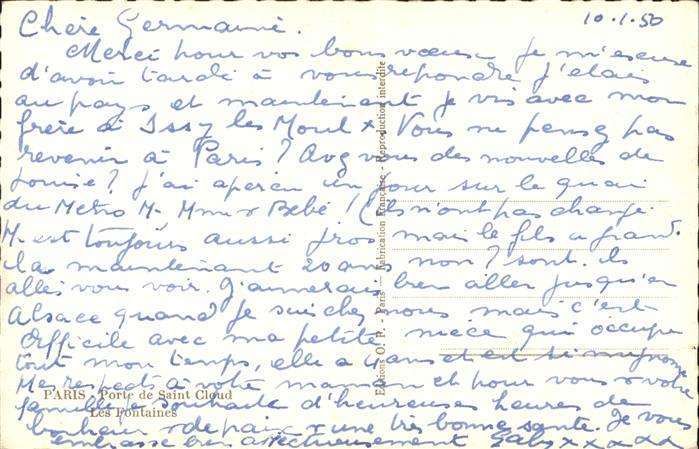 10.1.50
Chère Germaine.
Merci pour vos bons voeux je m'excuse
d'avoir tardé à vous repondre j'étais
au pays et maintenant je vis avec mon
frère à Issy les Moul x. Vous ne pensez pas
revenir à Paris? Avez vous des nouvelles de
Louise? J'ai aperçu un jour sur le quai
du Metro M. Mme & Bébé! (ils n'ont pas changé
M. est toujours aussi gros mais le fils a grand.
il a maintenant 20 ans non? sont ils
allés vous voir. J'aimerais bien aller jusqu'en
Alsace quand je suis chez nous mais c'est
difficile avec ma petite niece qui occupe
tout mon temps, elle a 4 ans et est si mignonne
Mes respects à votre maman et pour vous & votre
famille je souhaite d'heureuses heures de
bonheur & de paix & une très bonne santé. Je vous
embrasse bien affectueusement Gaby x x x x x
PARIS Porte de Saint Cloud
Les Fontaines
Editions O. P. - Paris — Fabrication Française - Reproduction interdite